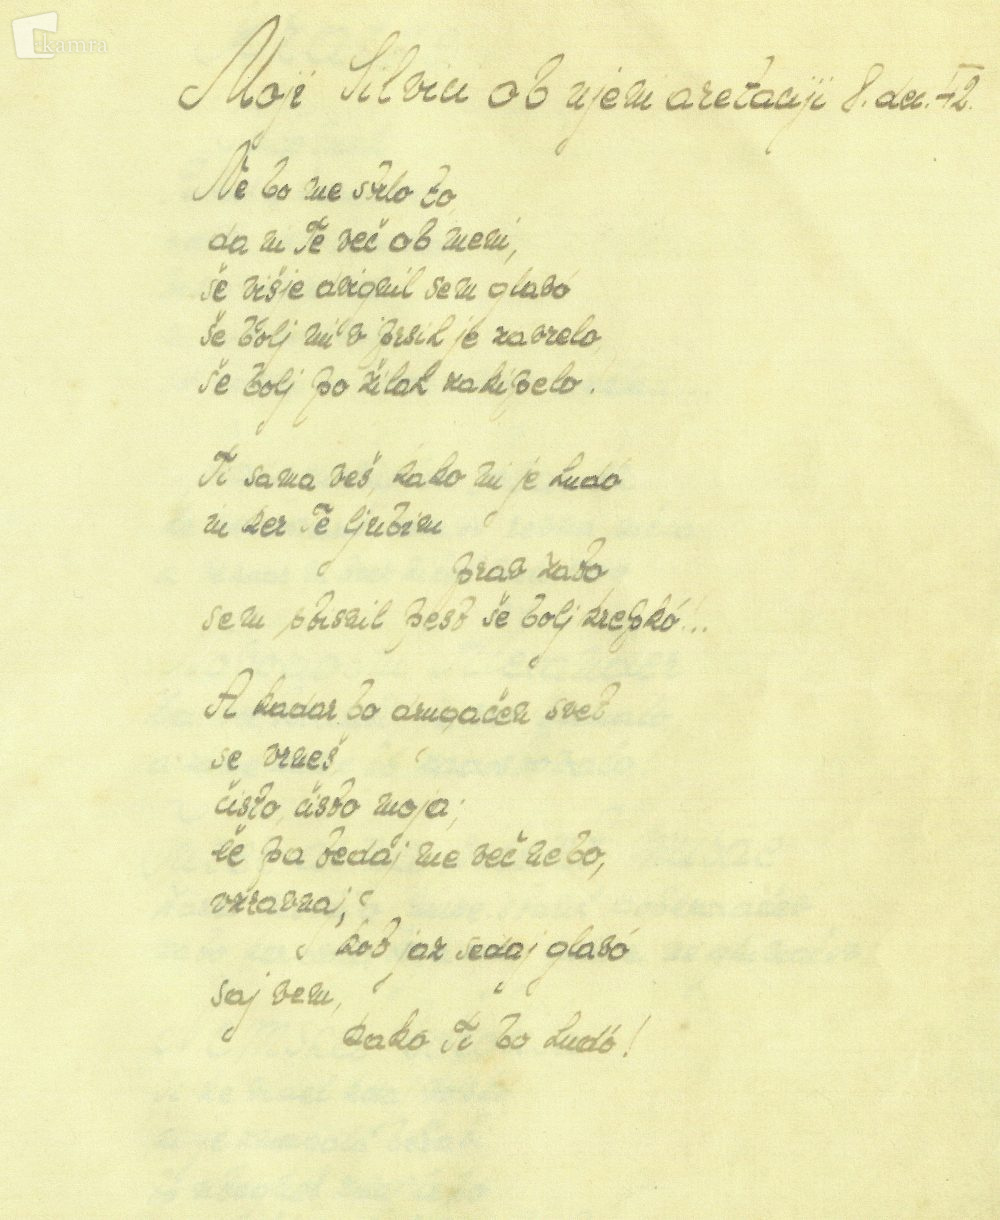 kamra
Moji Silvici ob njeni aretaciji 8. dec. 42.
Ne bo me strlo to,
da ni Te več ob meni,
še višje dvignil sem glavó
še bolj mi v prsih je zavrelo,
še bolj po žilah zakipelo.
Ti sama veš, kako mi je hudó
in ker Te ljubim
prav zato
sem stisnil pest še bolj krepkó!...
A kadar bo drugačen svet
se vrneš
čisto, čisto moja;
če pa tedaj me več ne bo,
vzravnaj,
kot jaz sedaj glavó
saj vem,
kako Ti bo hudó!